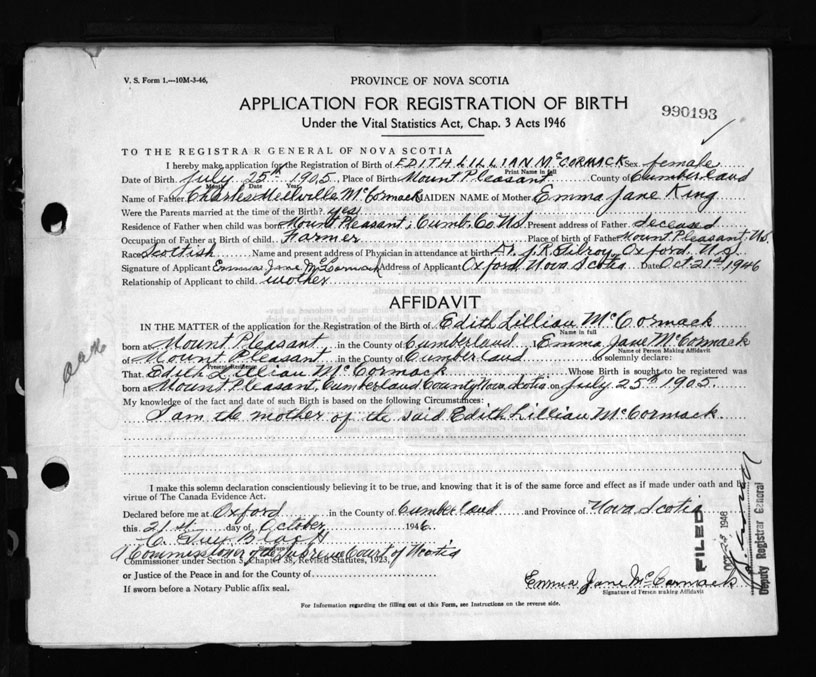 V. S. Form 1.—10M-3-46,
PROVINCE OF NOVA SCOTIA
APPLICATION FOR REGISTRATION OF BIRTH
990193
Under the Vital Statistics Act, Chap. 3 Acts 1946
TO THE REGISTRAR GENERAL OF NOVA SCOTIA
I hereby make application for the Registration of Birth of EDITH LILLIAN McCORMACK Sex female
Print Name in full
Date of Birth July 25th 1905, Place of Birth Mount Pleasant County of Cumberland
Month Date Year
Name of Father Charles Mellville McCormack MAIDEN NAME of Mother Emma Jane King
Were the Parents married at the time of the Birth? yes
Residence of Father when child was born Mount Pleasant, Cumb. Co. N.S. Present address of Father deceased
Occupation of Father at Birth of child Farmer Place of birth of Father Mount Pleasant, N.S.
Race Scottish Name and present address of Physician in attendance at birth Dr. J. R. Gilroy, Oxford, N.S.
Signature of Applicant Emma Jane McCormack Address of Applicant Oxford, Nova Scotia Date Oct 21st 1946
Relationship of Applicant to child mother
AFFIDAVIT
IN THE MATTER of the application for the Registration of the Birth of Edith Lillian McCormack
Name in full
born at Mount Pleasant in the County of Cumberland Emma Jane McCormack
Name of Person Making Affidavit
of Mount Pleasant in the County of Cumberland do solemnly declare:
Present Residence
That Edith Lillian McCormack Whose Birth is sought to be registered was
born at Mount Pleasant, Cumberland County Nova Scotia on July 25th 1905.
My knowledge of the fact and date of such Birth is based on the following Circumstances:
I am the mother of the said Edith Lillian McCormack.
I make this solemn declaration conscientiously believing it to be true, and knowing that it is of the same force and effect as if made under oath and by
virtue of The Canada Evidence Act.
Declared before me at Oxford in the County of Cumberland and Province of Nova Scotia
this 21st day of October 1946.
C. Guy Black
A Commissioner of the Supreme Court of Scotia
Commissioner under Section 3, Chapter 38, Revised Statutes, 1923,
or Justice of the Peace in and for the County of
If sworn before a Notary Public affix seal.
Emma Jane McCormack
Signature of Person making Affidavit
FILED
Deputy Registrar General
For Information regarding the filling out of this Form, see Instructions on the reverse side.